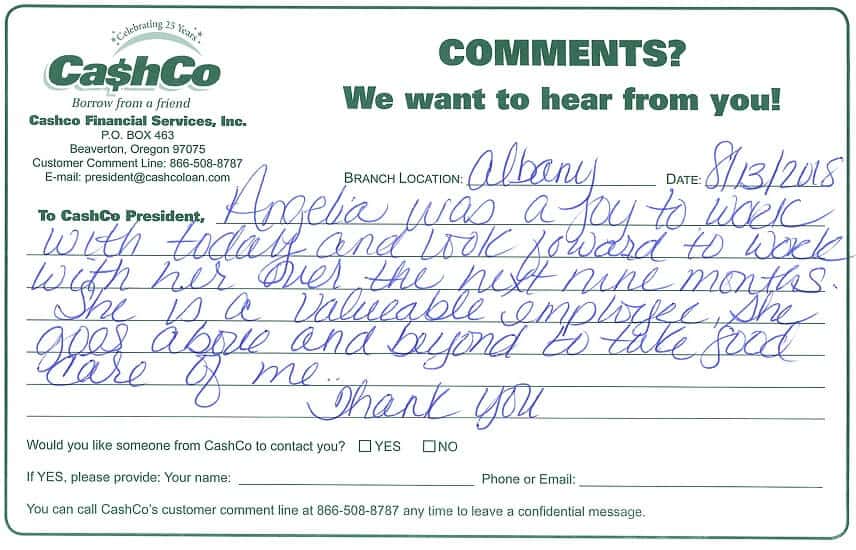 Celebrating 25 Years
Ca$hCo
Borrow from a friend
Cashco Financial Services, Inc.
P.O. BOX 463
Beaverton, Oregon 97075
Customer Comment Line: 866-508-8787
E-mail: president@cashcoloan.com
COMMENTS?
We want to hear from you!
BRANCH LOCATION: Albany DATE: 8/13/2018
To CashCo President, Angelia was a joy to work
with today and look foward to work
with her over the next nine months.
She is a valueable employee, she
goes above and beyond to take good
care of me..
Thank you
Would you like someone from CashCo to contact you? YES NO
If YES, please provide: Your name: Phone or Email:
You can call CashCo's customer comment line at 866-508-8787 any time to leave a confidential message.